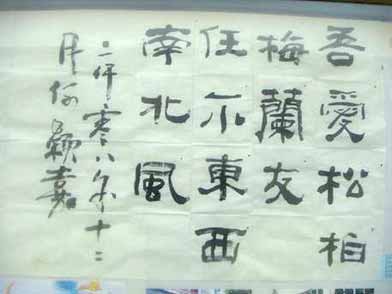 吾愛松柏
梅蘭友
任尔東西
南北風
二仟零八年十二
月何颖嘉